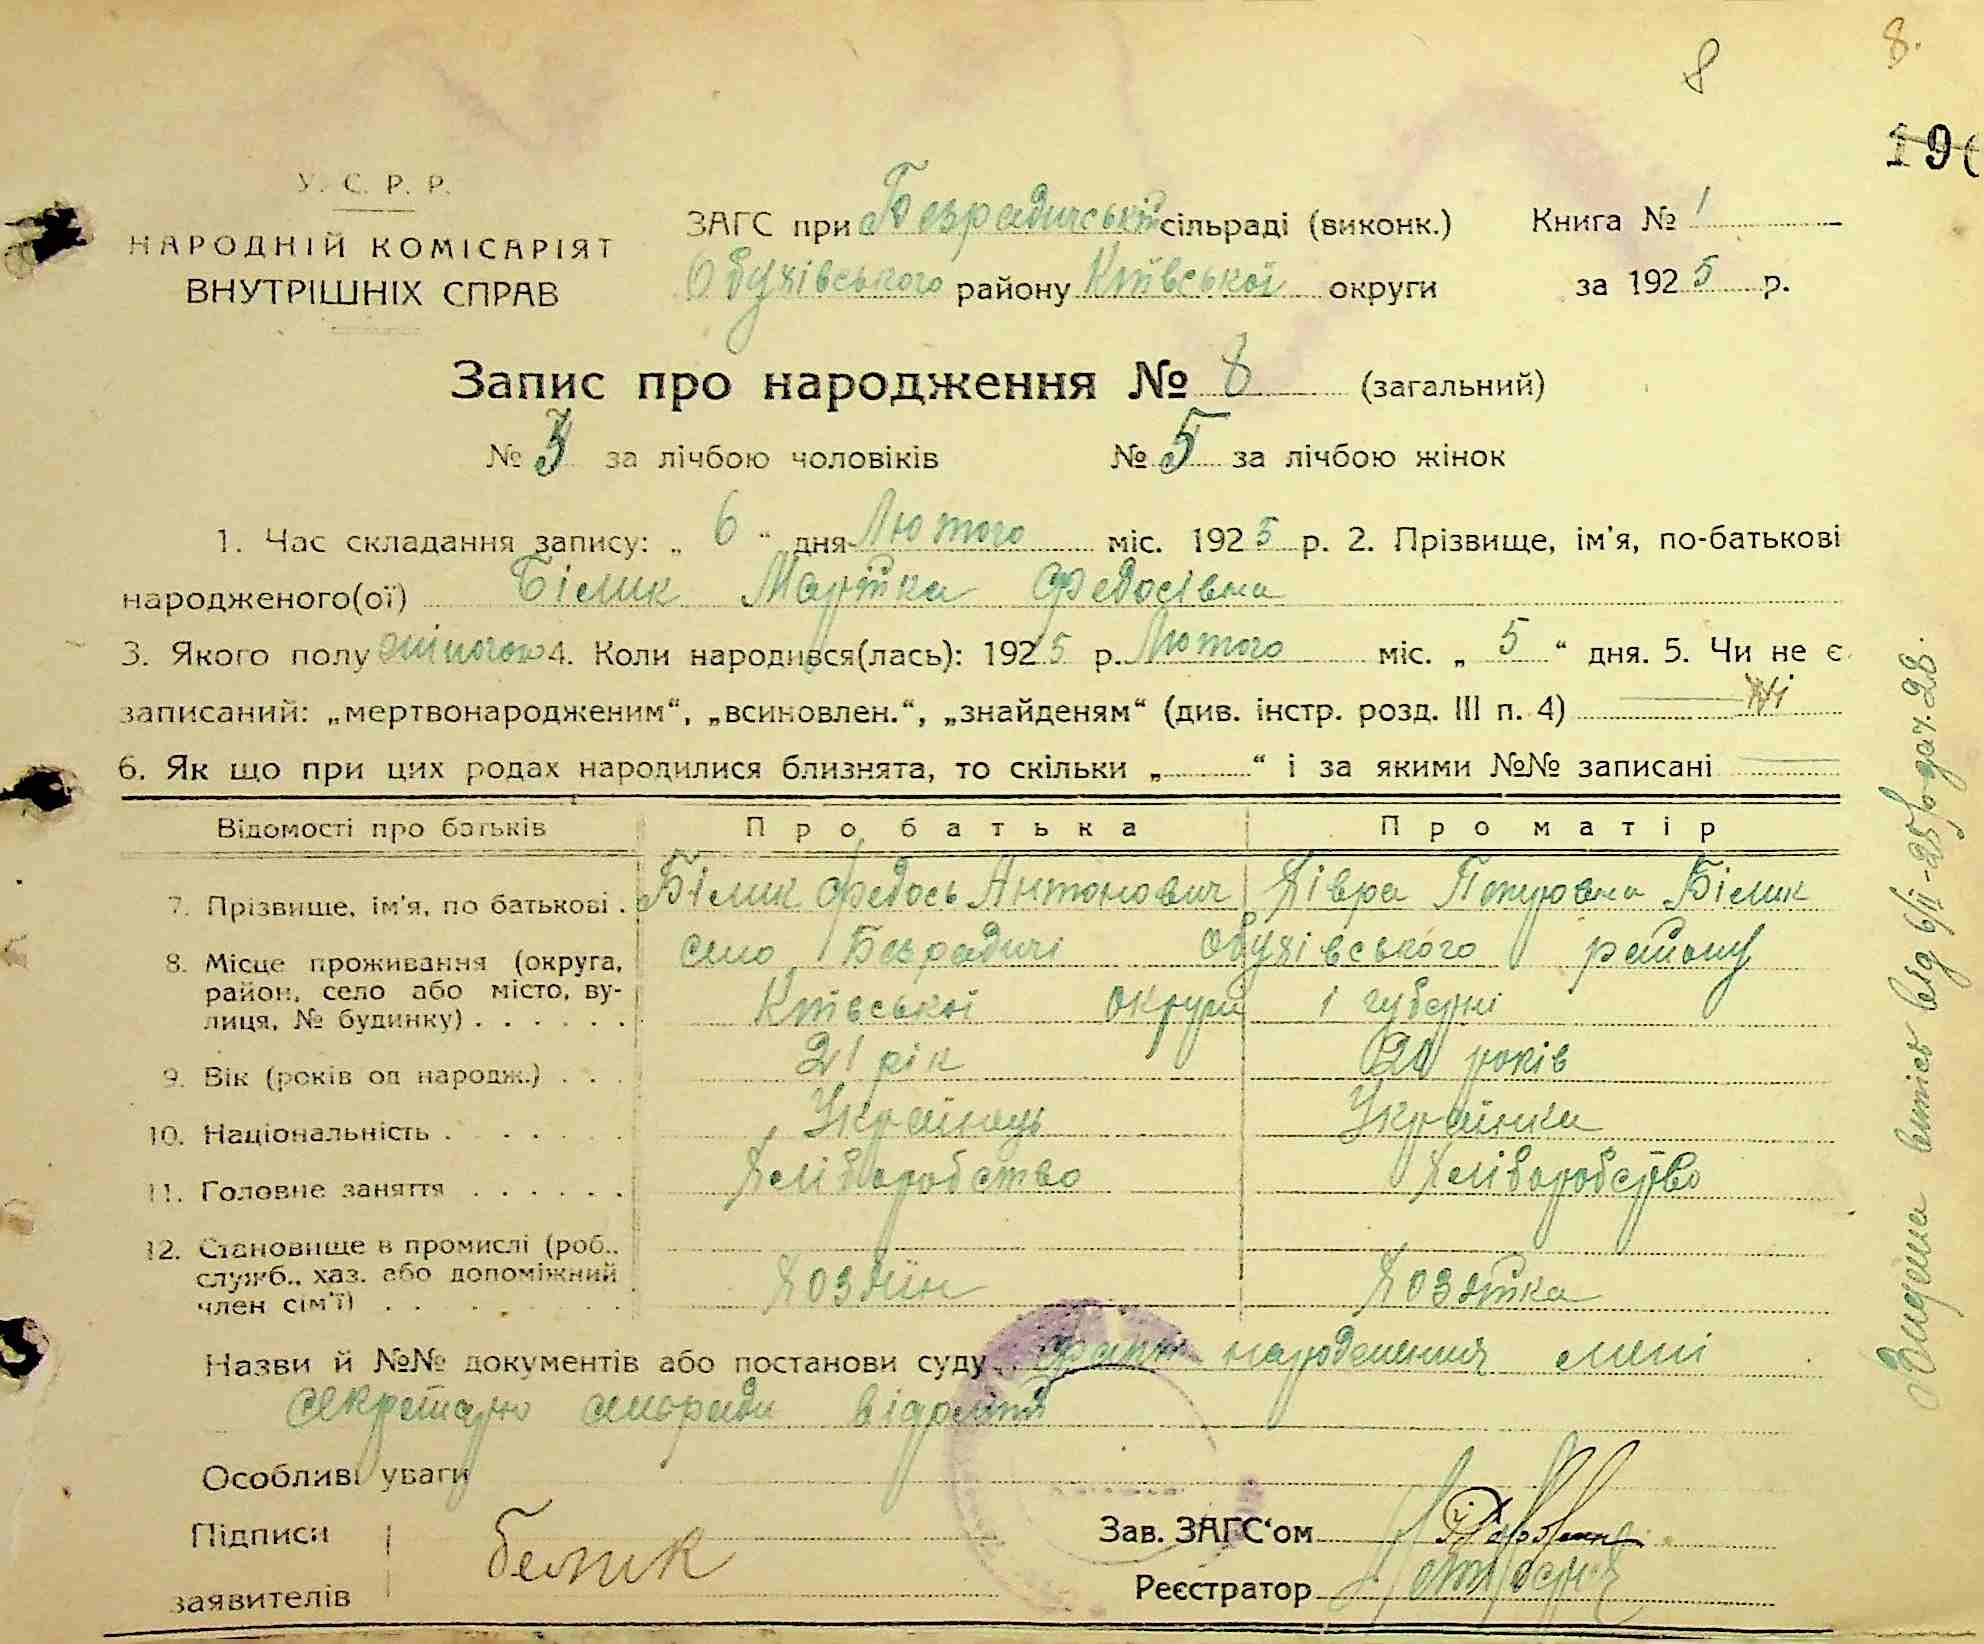 8.
8
19
У. С. Р. Р.
НАРОДНІЙ КОМІСАРІЯТ
ВНУТРІШНІХ СПРАВ
ЗАГС при Безрадичській сільраді (виконк.) Книга № 1
Обухівського району Київської округи за 1925 р.
Запис про народження № 8 (загальний)
№ 3 за лічбою чоловіків № 5 за лічбою жінок
1. Час складання запису: „ 6 “ дня Лютого міс. 1925 р. 2. Прізвище, ім'я, по-батькові
народженого(ої) Білик Мартка Федосівна
3. Якого полу жіночого 4. Коли народився(лась): 1925 р. Лютого міс. „ 5 “ дня. 5. Чи не є
записаний: „мертвонародженим“, „всиновлен.“, „знайденям“ (див. інстр. розд. III п. 4) Ні
6. Як що при цих родах народилися близнята, то скільки „ “ і за якими №№ записані
Відомості про батьків Про батька Про матір
7. Прізвище, ім'я, по батькові . Білик Федось Антонович Хівра Петровна Білик
8. Місце проживання (округа, село Безрадичі Обухівського району
район, село або місто, ву-
лиця, № будинку) . . . . . . Київської округи і губерні
9. Вік (років од народж.) . . . 21 рік 20 років
10. Національність . . . . . . . Українець Українка
11. Головне заняття . . . . . . Хліборобство Хліборобство
12. Становище в промислі (роб.,
служб., хаз. або допоміжний Хозяїн Хозяйка
член сім'ї) . . . . . . . . .
Назви й №№ документів або постанови суду. Факт народження мені
секретарю сельради відомий
Особливі уваги
Підписи
заявителів
Белик
Зав. ЗАГС‘ом
Реєстратор
Видана витяг від 6/II-25р.